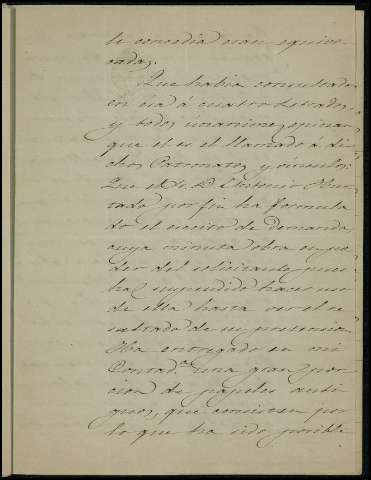 le concedia eran equivo-
cadas.
Que habia consultado
en esa á cuatro Letrados,
y todos unanimes opinan
que él es el llamado á di-
chos Patronatos y vínculos:
Que el Sr. D. Antonio Hur-
tado por fin ha formula-
do el escrito de demanda,
cuya minuta obra en po-
der del solicitante, pues
ha suspendido hacer uso
de ella hasta ver el re-
sultado de su pretension.
Ha entregado en mi
Contad.ª una gran por-
cion de papeles anti-
guos, que consisten por
lo que ha sido posible